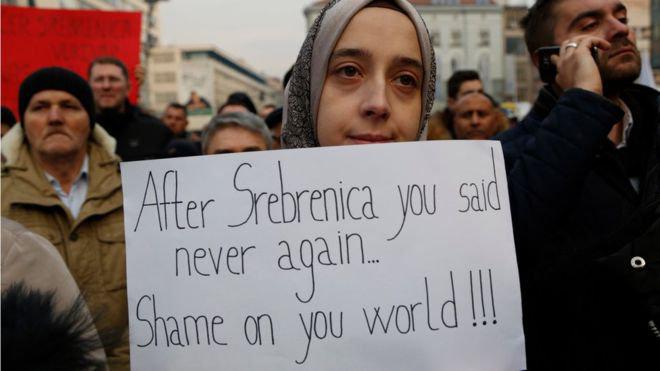 After Srebrenica you said
never again...
Shame on you world!!!